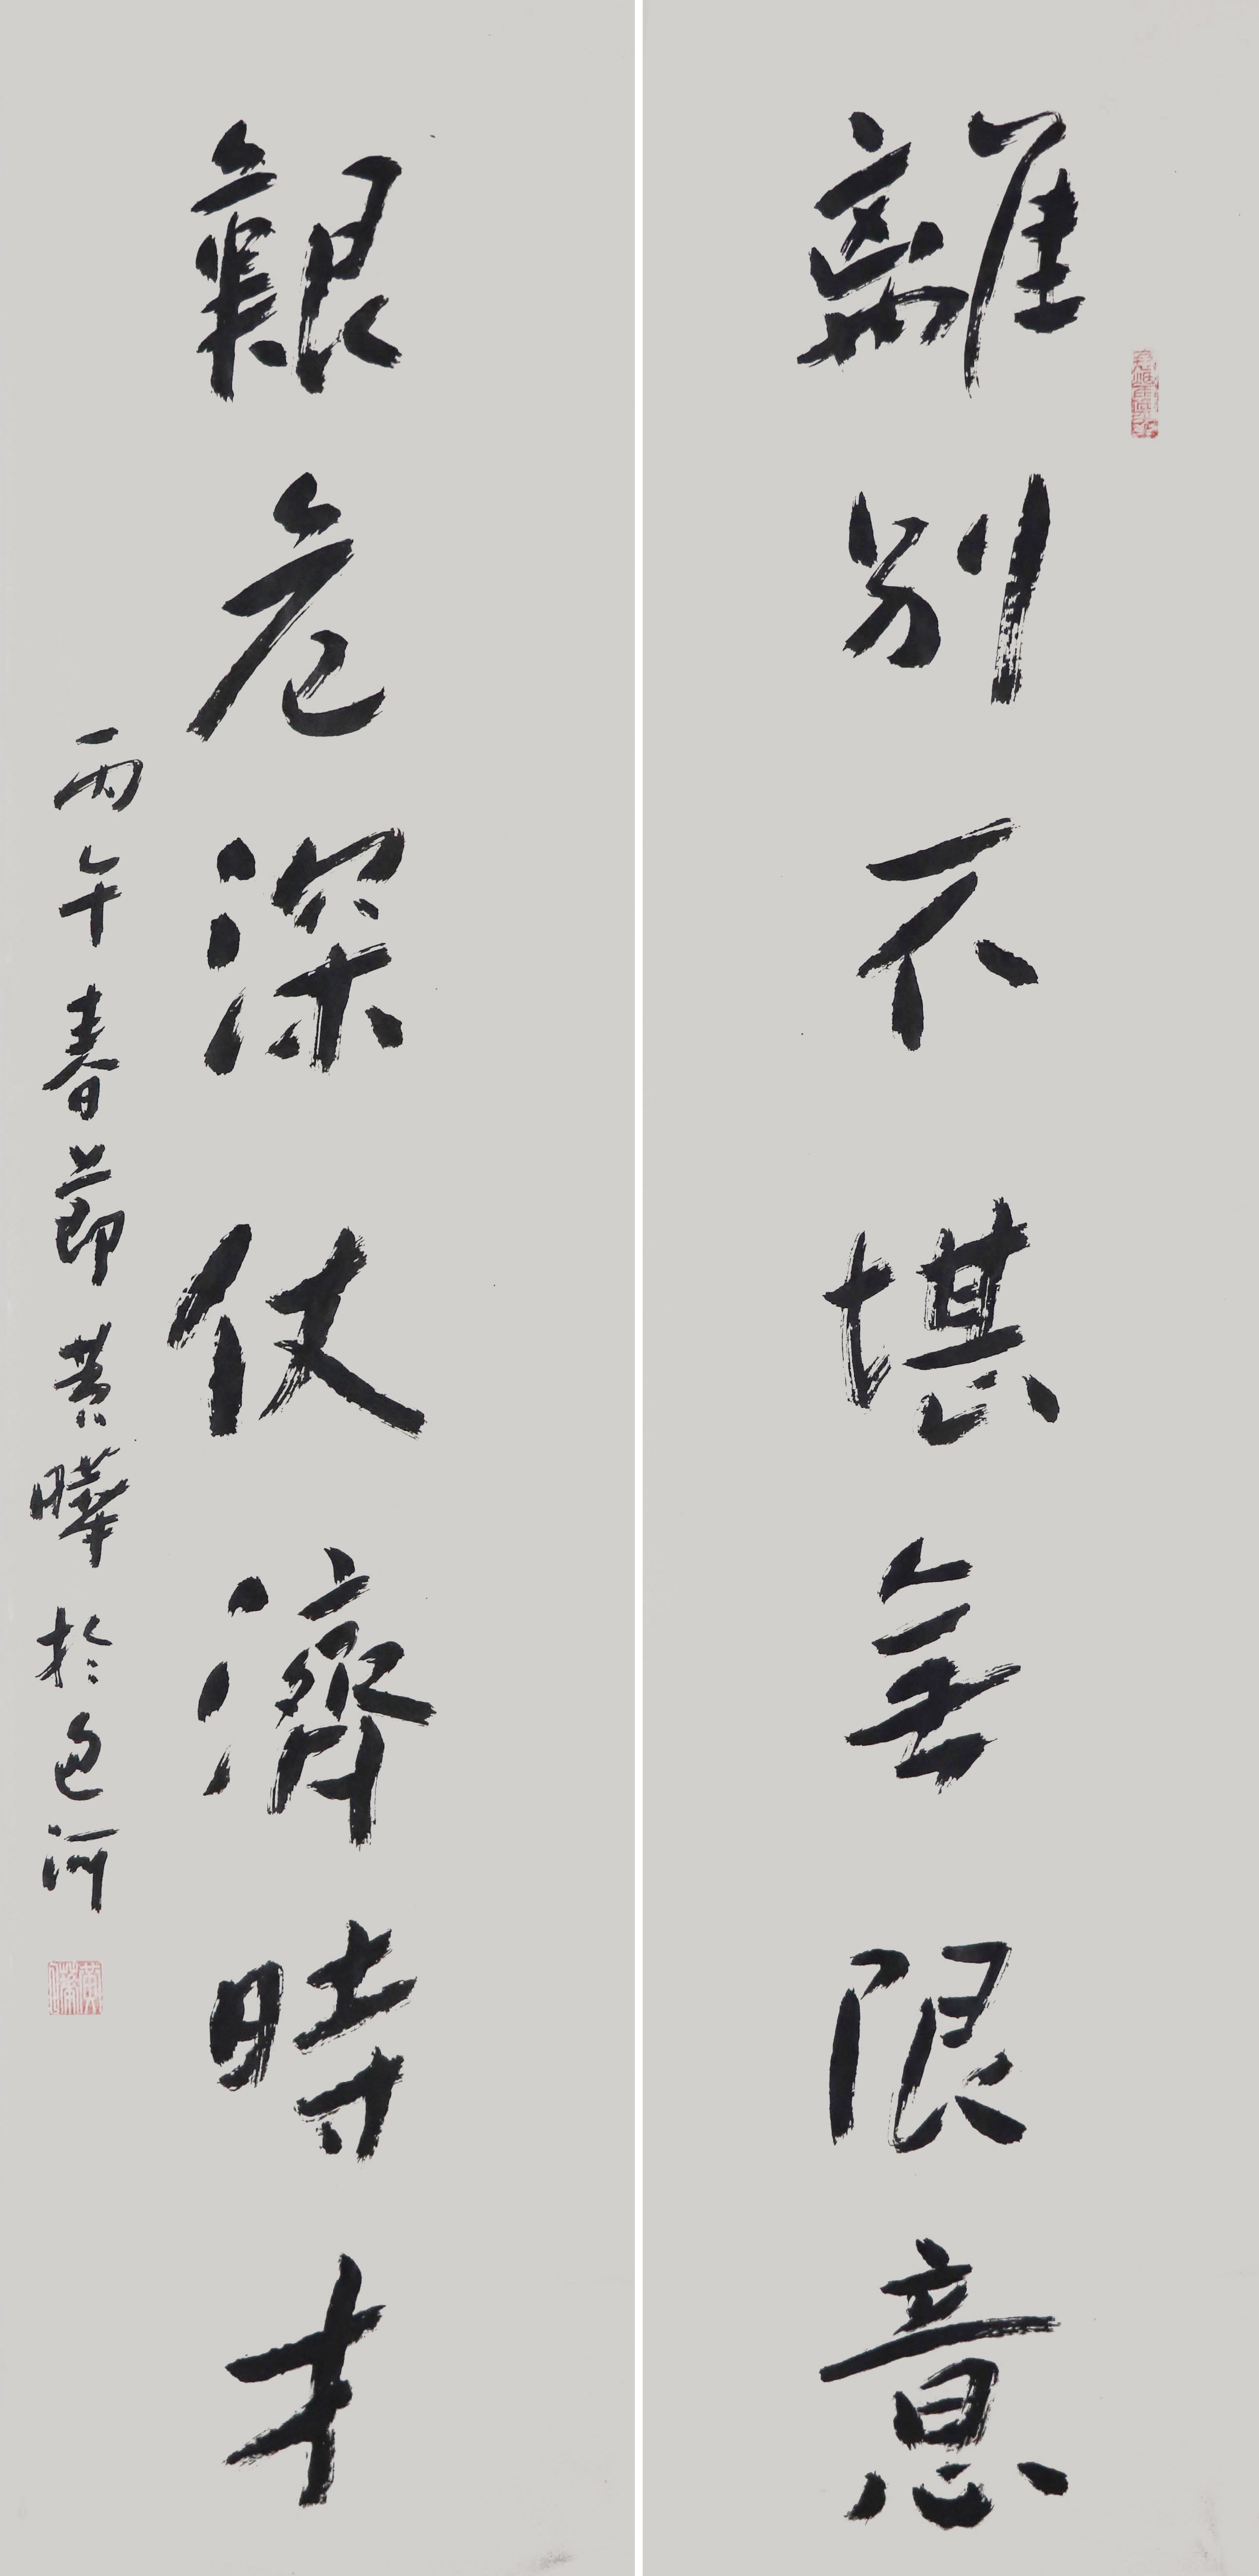 離別不堪無限意
艱危深仗濟時才
丙午春節黄曄於包河